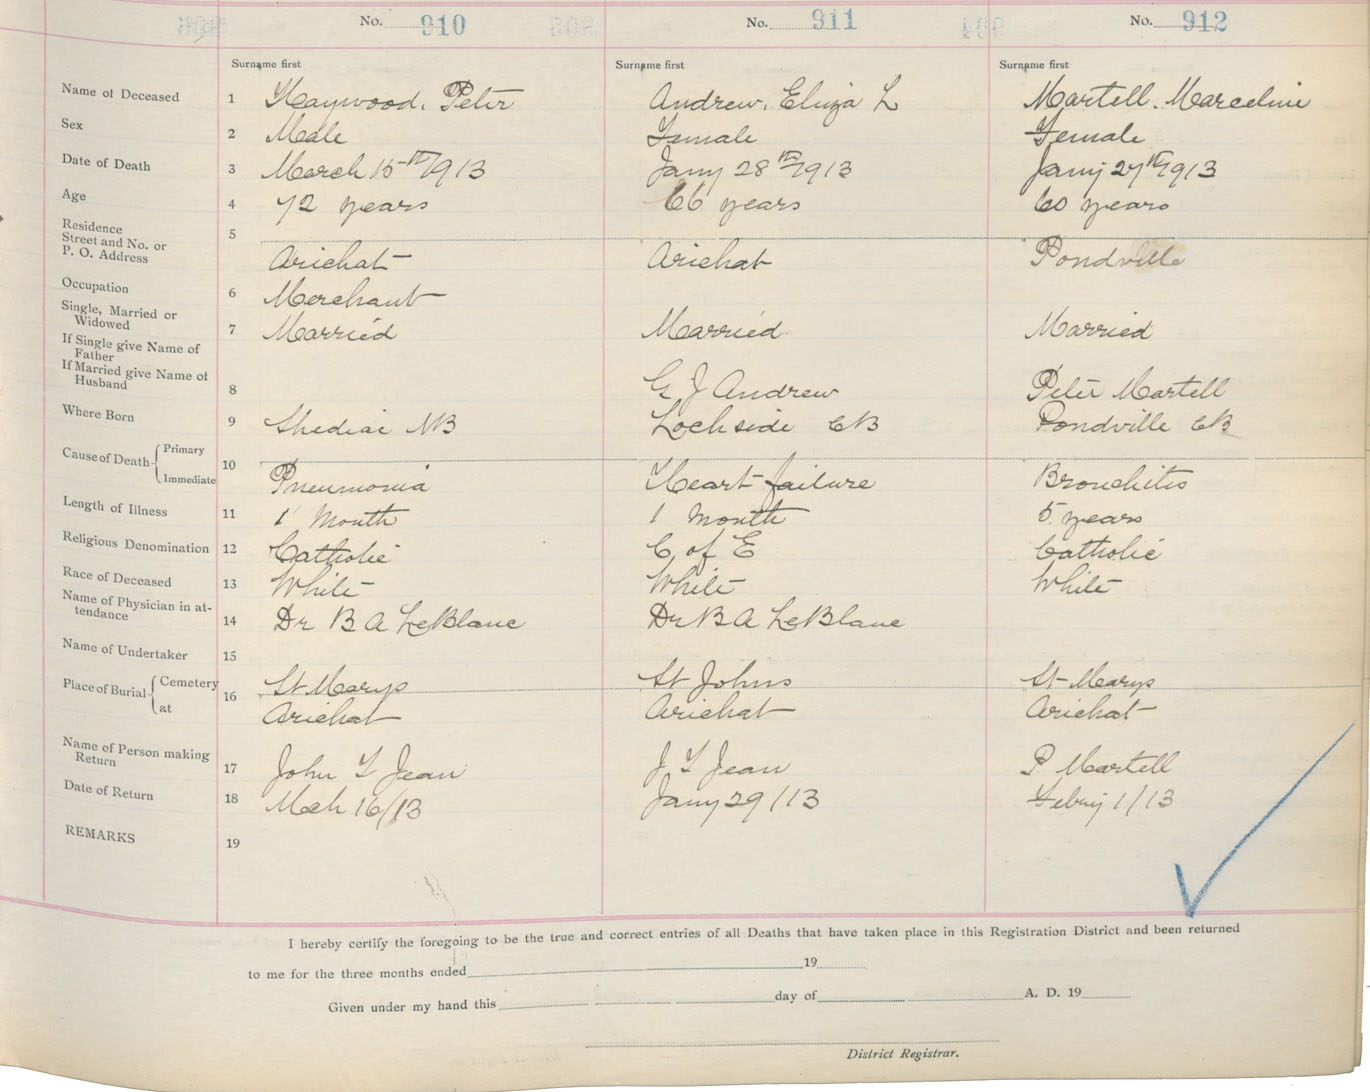 No. 910 No. 911 No. 912
Surname first Surname first Surname first
Name of Deceased 1 Haywood, Peter Andrew, Eliza L Martell, Marceline
Sex 2 Male Female Female
Date of Death 3 March 15th 1913 Jany 28th 1913 Jany 27th 1913
Age 4 72 years 66 years 60 years
Residence 5
Street and No. or
P. O. Address Arichat Arichat Pondville
Occupation 6 Merchant
Single, Married or
Widowed 7 Married Married Married
If Single give Name of
Father
If Married give Name of
Husband 8 G J Andrew Peter Martell
Where Born 9 Shediac NB Lochside CB Pondville CB
Cause of Death Primary 10
Immediate Pneumonia Heart failure Bronchitis
Length of Illness 11 1 Month 1 month 5 years
Religious Denomination 12 Catholic C of E Catholic
Race of Deceased 13 White White White
Name of Physician in at-
tendance 14 Dr B A LeBlanc Dr B A LeBlanc
Name of Undertaker 15
Place of Burial Cemetery 16 St Marys St Johns St Marys
at Arichat Arichat Arichat
Name of Person making
Return 17 John L Jean J L Jean P Martell
Date of Return 18 Mch 16/13 Jany 29/13 Febry 1/13
REMARKS 19
I hereby certify the foregoing to be the true and correct entries of all Deaths that have taken place in this Registration District and been returned
to me for the three months ended 19
Given under my hand this day of A. D. 19
District Registrar.